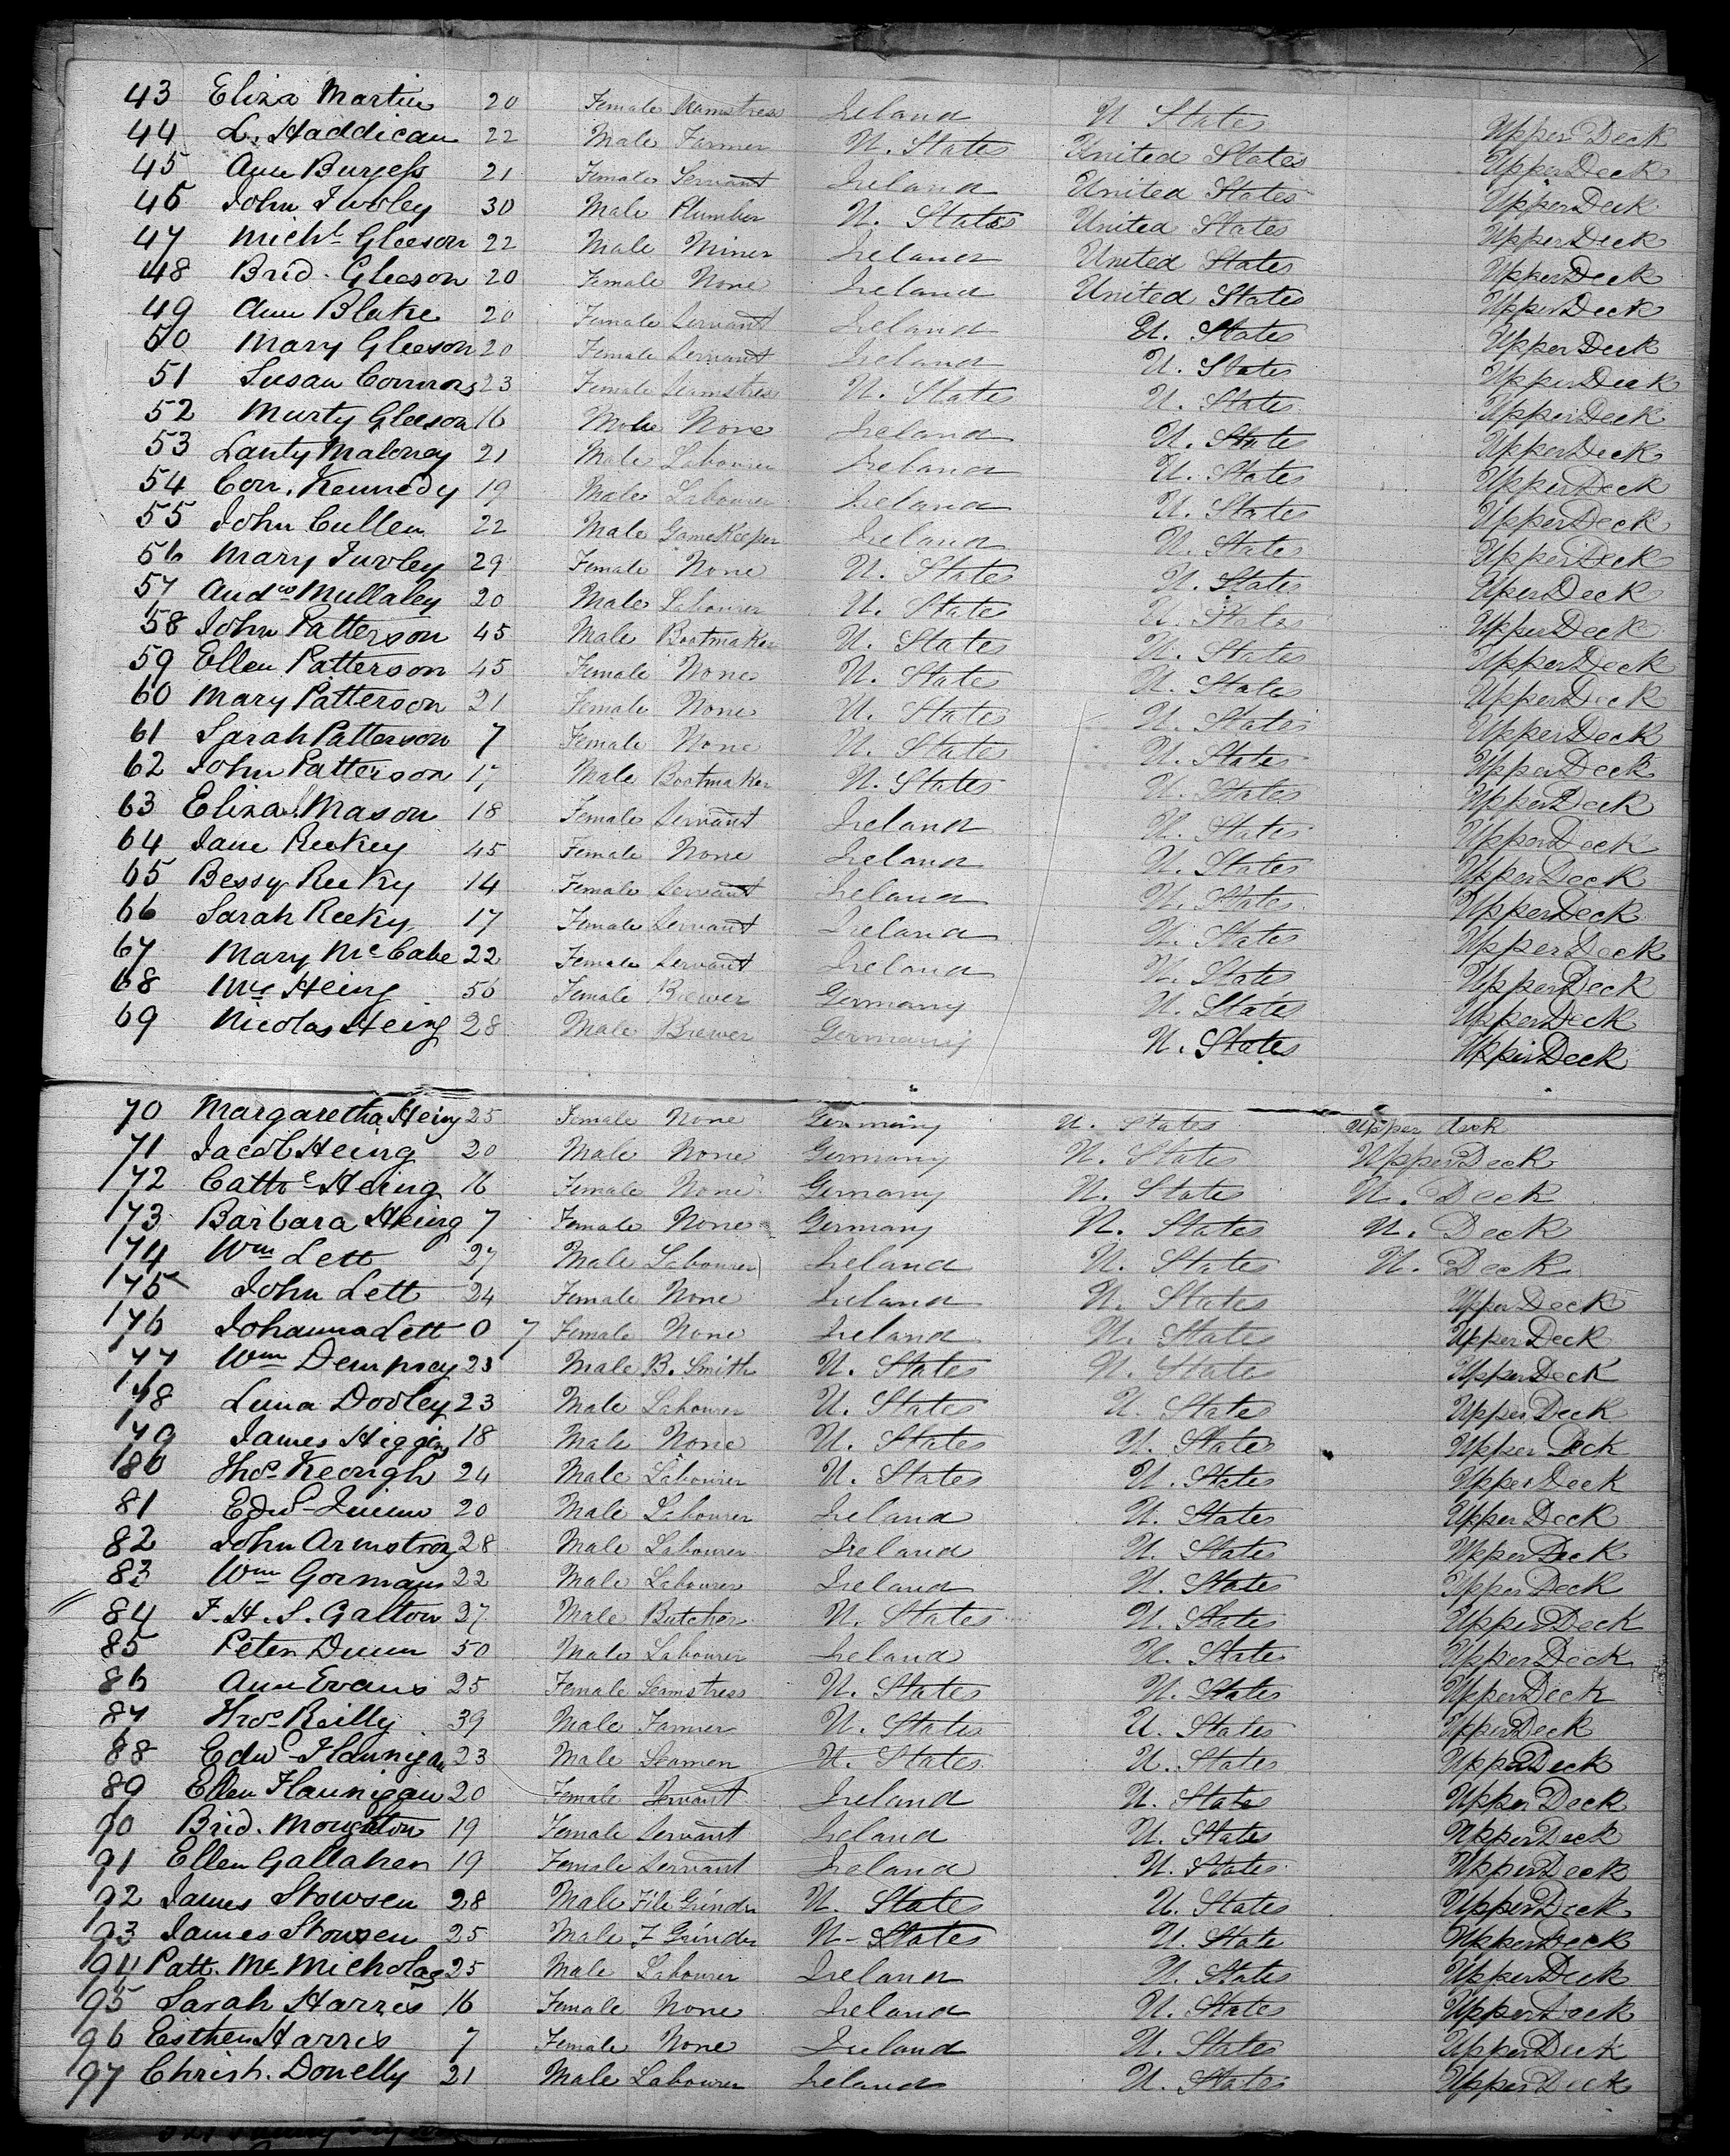 43 Eliza Martin 20 Female Seamstress Ireland U States Upper Deck
44 L. Haddican 22 Male Farmer U. States United States Upper Deck
45 Ann Burgess 21 Female Servant Ireland United States Upper Deck
46 John Turley 30 Male Plumber U. States United States Upper Deck
47 Michl Gleeson 22 Male Miner Ireland United States Upper Deck
48 Brid. Gleeson 20 Female None Ireland United States Upper Deck
49 Ann Blake 20 Female Servant Ireland U. States Upper Deck
50 Mary Gleeson 20 Female Servant Ireland U. States Upper Deck
51 Susan Connors 23 Female Seamstress U. States U. States Upper Deck
52 Murty Gleeson 16 Male None Ireland U. States Upper Deck
53 Lanty Maloney 21 Male Labourer Ireland U. States Upper Deck
54 Con. Kennedy 19 Male Labourer Ireland U. States Upper Deck
55 John Cullen 22 Male GameKeeper Ireland U. States Upper Deck
56 Mary Turley 29 Female None U. States U. States Upper Deck
57 Andw Mullaley 20 Male Labourer U. States U. States Upper Deck
58 John Patterson 45 Male Bootmaker U. States U. States Upper Deck
59 Ellen Patterson 45 Female None U. States U. States Upper Deck
60 Mary Patterson 21 Female None U. States U. States Upper Deck
61 Sarah Patterson 7 Female None U. States U. States Upper Deck
62 John Patterson 17 Male Bootmaker U. States U. States Upper Deck
63 Eliza Mason 18 Female Servant Ireland U. States Upper Deck
64 Jane Reekey 45 Female None Ireland U. States Upper Deck
65 Bessy Reeky 14 Female Servant Ireland U. States Upper Deck
66 Sarah Reeky 17 Female Servant Ireland U. States Upper Deck
67 Mary McCabe 22 Female Servant Ireland U. States Upper Deck
68 Mrs Heing 56 Female Brewer Germany U. States Upper Deck
69 Nicolas Heing 28 Male Brewer Germany U. States Upper Deck
70 Margaretha Heing 25 Female None Germany U. States Upper deck
71 Jacob Heing 20 Male None Germany U. States Upper Deck
172 Cathe Heing 16 Female None Germany U. States U. Deck
173 Barbara Heing 7 Female None Germany U. States U. Deck
174 Wm Lett 27 Male Labourer Ireland U. States U. Deck
175 John Lett 24 Female None Ireland U. States Upper Deck
176 Johanna Lett 0 7 Female None Ireland U. States Upper Deck
177 Wm Dempsey 23 Male B. Smith U. States U. States Upper Deck
178 Luna Dooley 23 Male Labourer U. States U. States Upper Deck
179 James Higgins 18 Male None U. States U. States Upper Deck
180 Thos Keough 24 Male Labourer U. States U. States Upper Deck
81 Edwd Quinn 20 Male Labourer Ireland U. States Upper Deck
82 John Armstrong 28 Male Labourer Ireland U. States Upper Deck
83 Wm Gorman 22 Male Labourer Ireland U. States Upper Deck
84 F. H. S. Galton 27 Male Butcher U. States U. States Upper Deck
85 Peter Dunn 50 Male Labourer Ireland U. States Upper Deck
86 Ann Evans 25 Female Seamstress U. States U. States Upper Deck
87 Thos Reilly 39 Male Farmer U. States U. States Upper Deck
88 Edwd Flannigan 23 Male Seamen U. States U. States Upper Deck
89 Ellen Flannigan 20 Female Servant Ireland U. States Upper Deck
90 Brid. Moughton 19 Female Servant Ireland U. States Upper Deck
91 Ellen Gallaher 19 Female Servant Ireland U. States Upper Deck
92 James Stowsen 28 Male File Grinder U. States U. States Upper Deck
93 James Stowsen 25 Male F Grinder U. States U. State Upper Deck
94 Patt. McMicholas 25 Male Labourer Ireland U. States Upper Deck
95 Sarah Harris 16 Female None Ireland U. States Upper Deck
96 Esther Harris 7 Female None Ireland U. States Upper Deck
97 Christ. Donelly 21 Male Labourer Ireland U. States Upper Deck